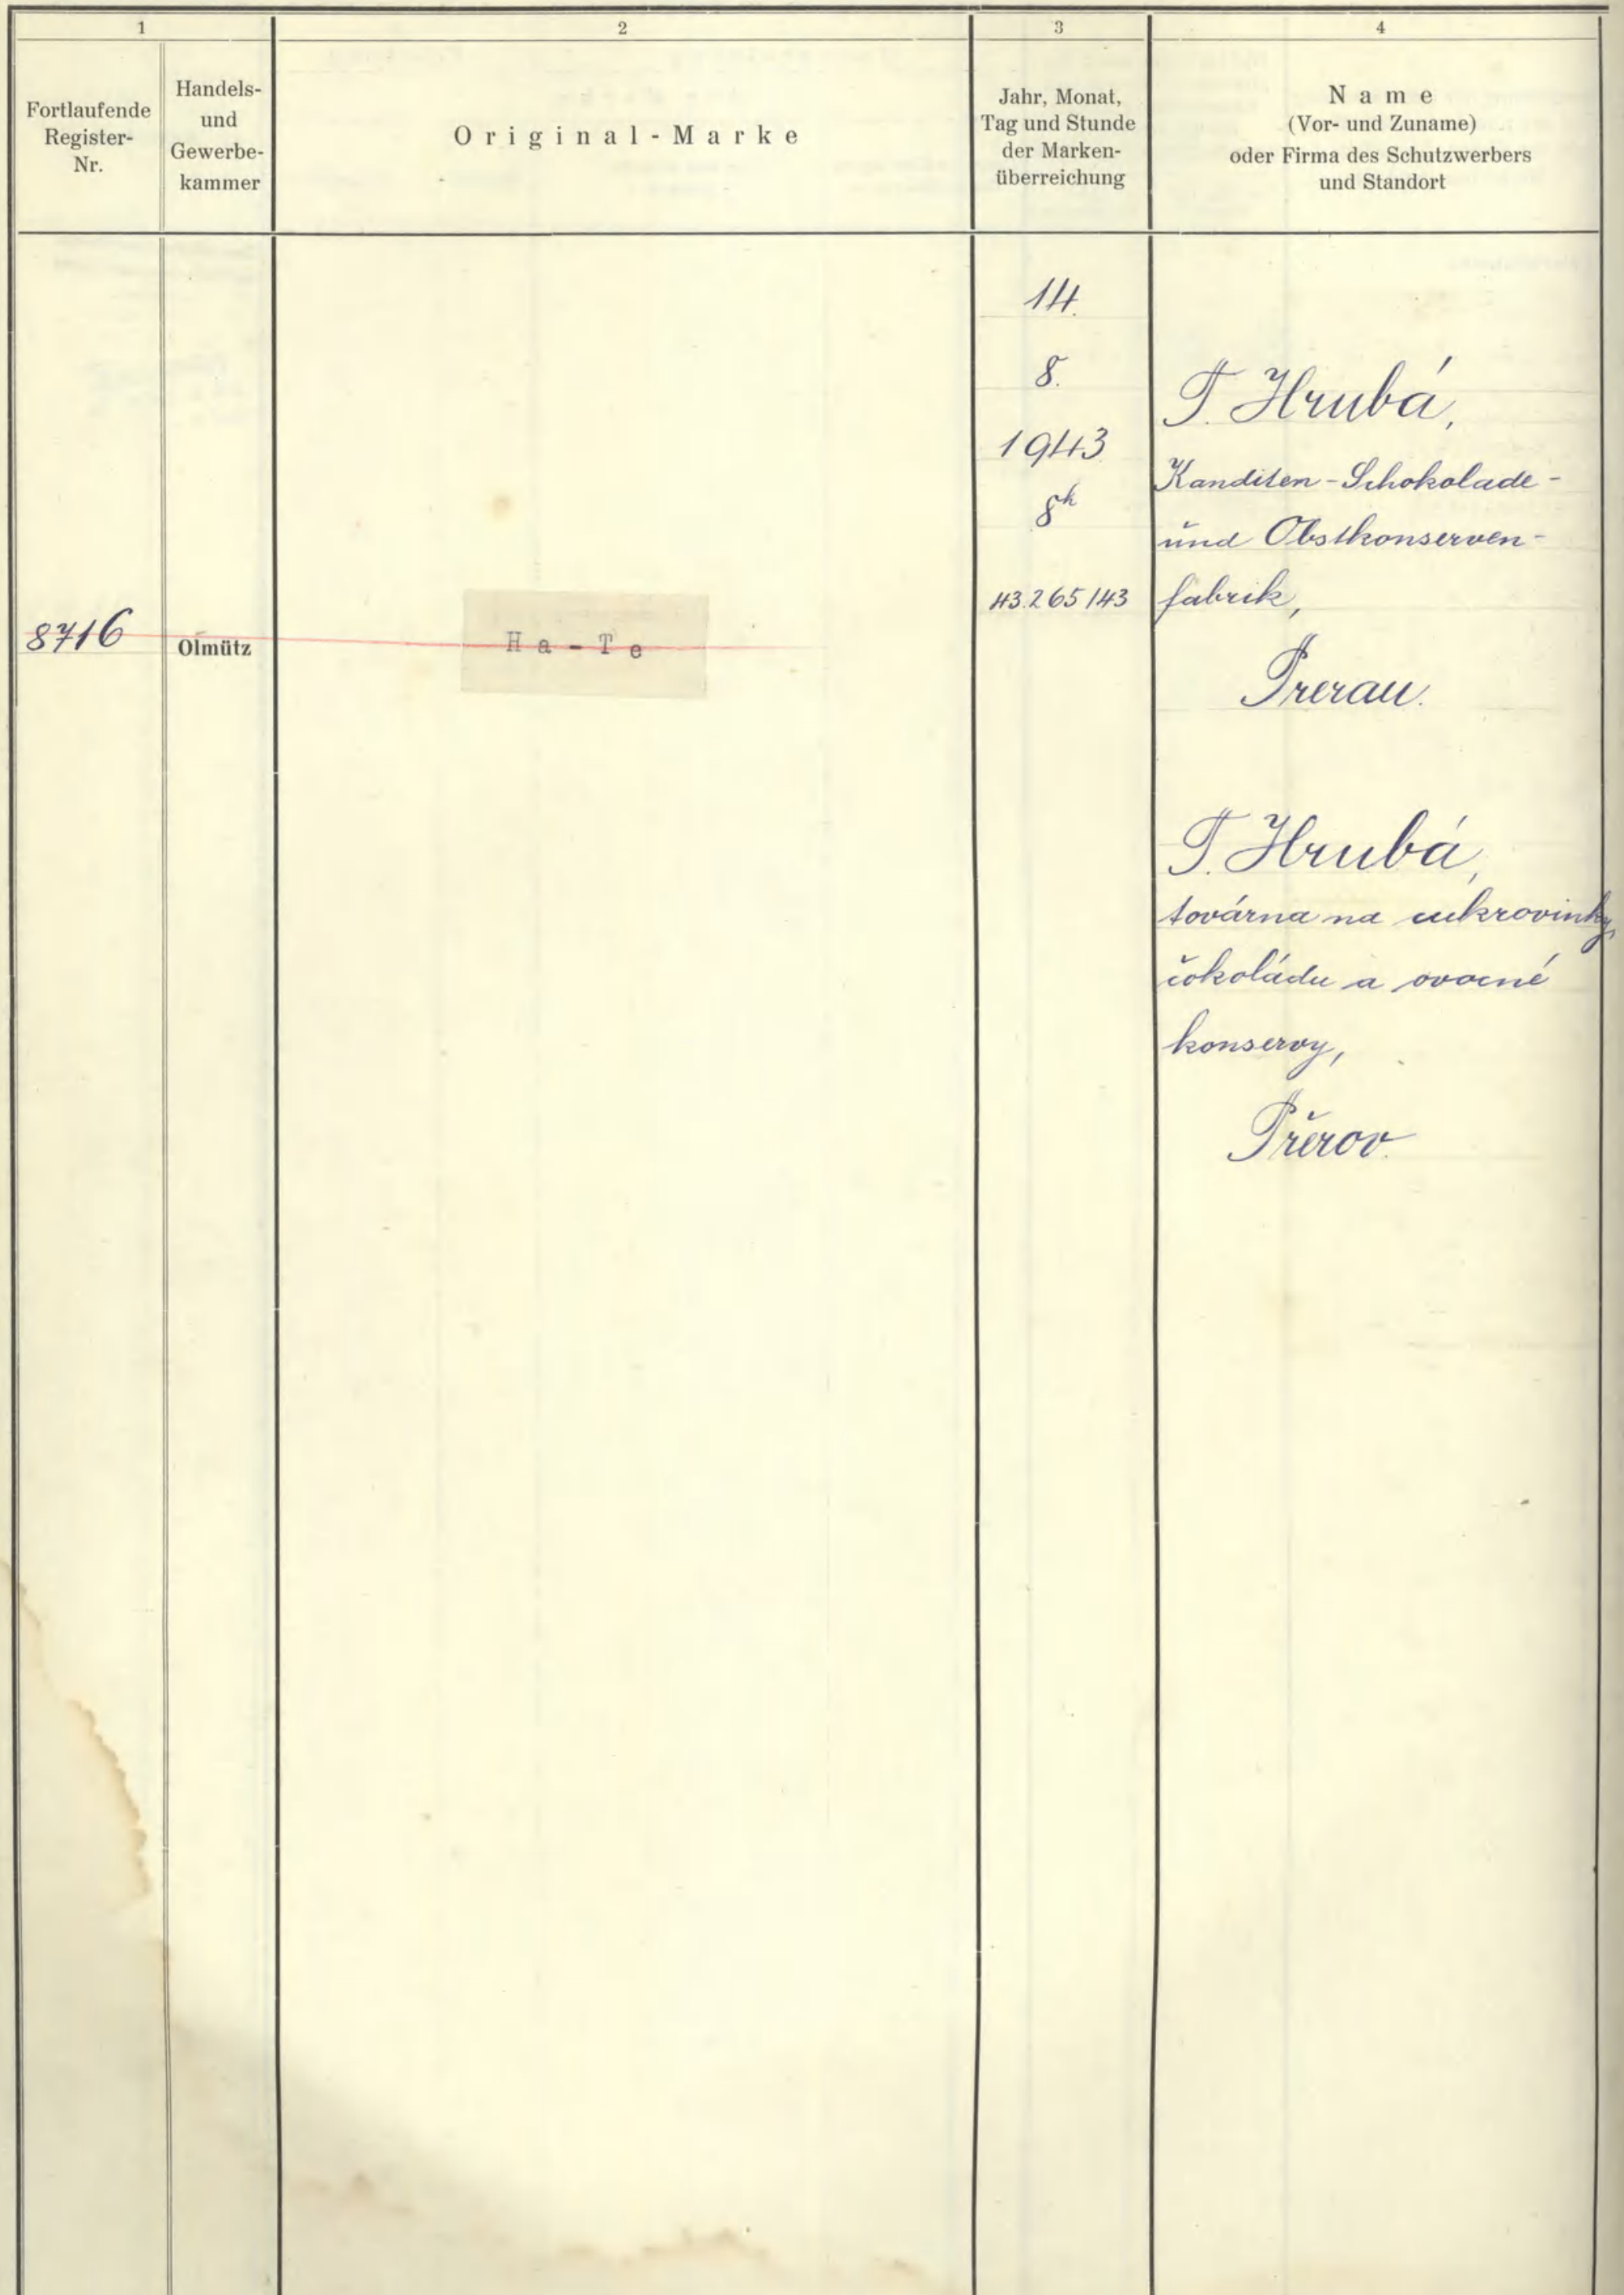 1
2
3
4
Fortlaufende
Register-
Nr.
Handels-
und
Gewerbe-
kammer
Original-Marke
Jahr, Monat,
Tag und Stunde
der Marken-
überreichung
Name
(Vor- und Zuname)
oder Firma des Schutzwerbers
und Standort
8716
Olmütz
Ha-Te
14.
8.
1943
8h
43.265/43
T. Hrubá,
Kanditen-Schokolade-
und Obstkonserven-
fabrik,
Prerau.
T. Hrubá,
továrna na cukrovinky,
čokoládu a ovocné
konservy,
Přerov.